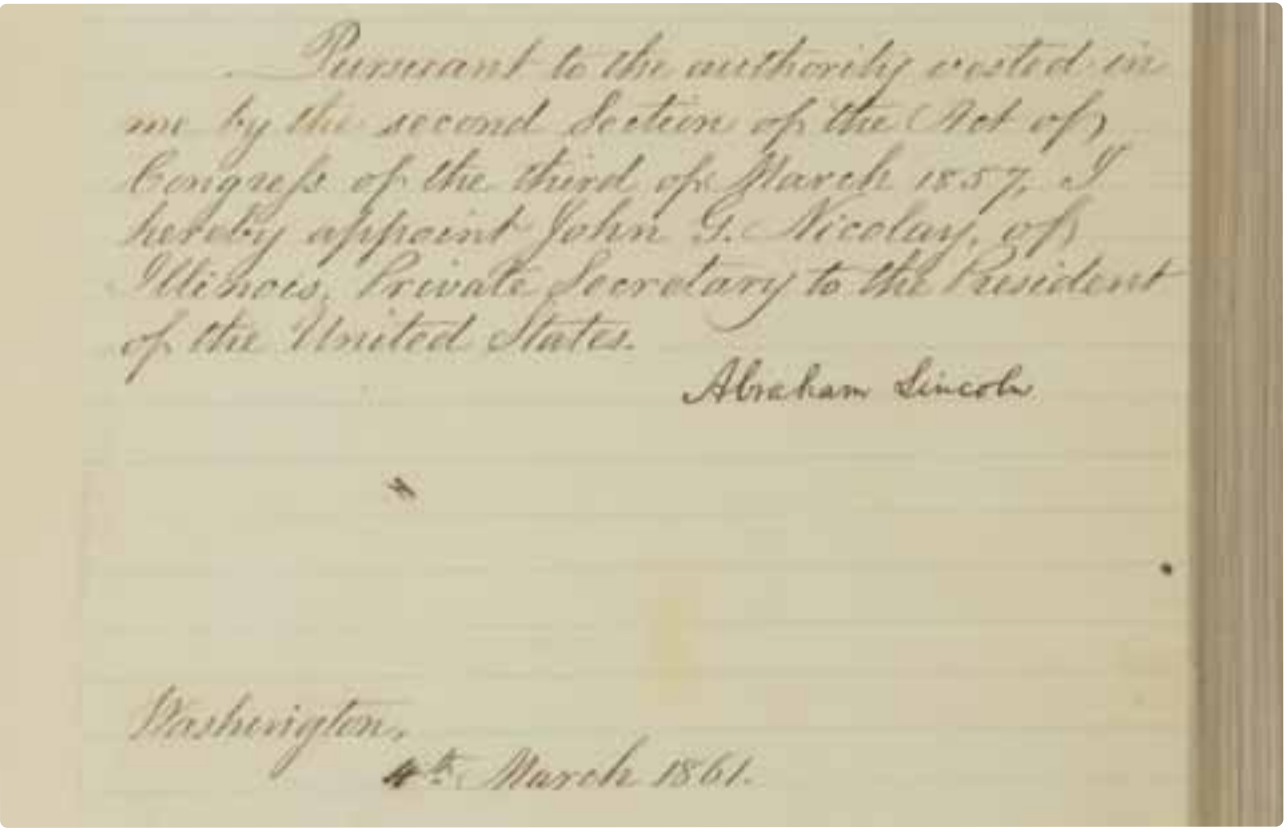 Pursuant to the authority vested in
me by the second Section of the Act of
Congress of the third of March 1857, I
hereby appoint John G. Nicolay, of
Illinois, Private Secretary to the President
of the United States.
Abraham Lincoln
Washington,
4th March 1861.